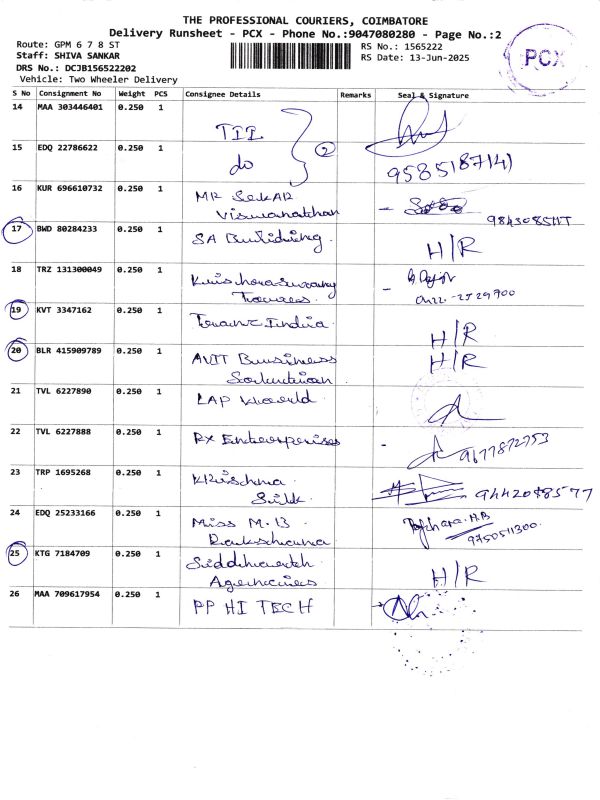 THE PROFESSIONAL COURIERS, COIMBATORE
Delivery Runsheet - PCX - Phone No.:9047080280 - Page No.:2
Route: GPM 6 7 8 ST
RS No.: 1565222
Staff: SHIVA SANKAR
RS Date: 13-Jun-2025
DRS No.: DCJB156522202
Vehicle: Two Wheeler Delivery
PCX
S No Consignment No Weight PCS Consignee Details Remarks Seal & Signature
14 MAA 303446401 0.250 1 TII
15 EDQ 22786622 0.250 1 do 2 9585187141
16 KUR 696610732 0.250 1 MR Sekar
Viswanathan
17 BWD 80284233 0.250 1 SA Building. H/R
18 TRZ 131300049 0.250 1
19 KVT 3347162 0.250 1 India. H/R
20 BLR 415909789 0.250 1 AVIT Business H/R
Solution
21 TVL 6227890 0.250 1 LAP World.
22 TVL 6227888 0.250 1 RX Enterprises 9677872753
23 TRP 1695268 0.250 1 Krishna
Silk.
24 EDQ 25233166 0.250 1 Miss M.B
9750511300.
25 KTG 7184709 0.250 1 Siddharth H/R
Agencies
26 MAA 709617954 0.250 1 PP HI TECH